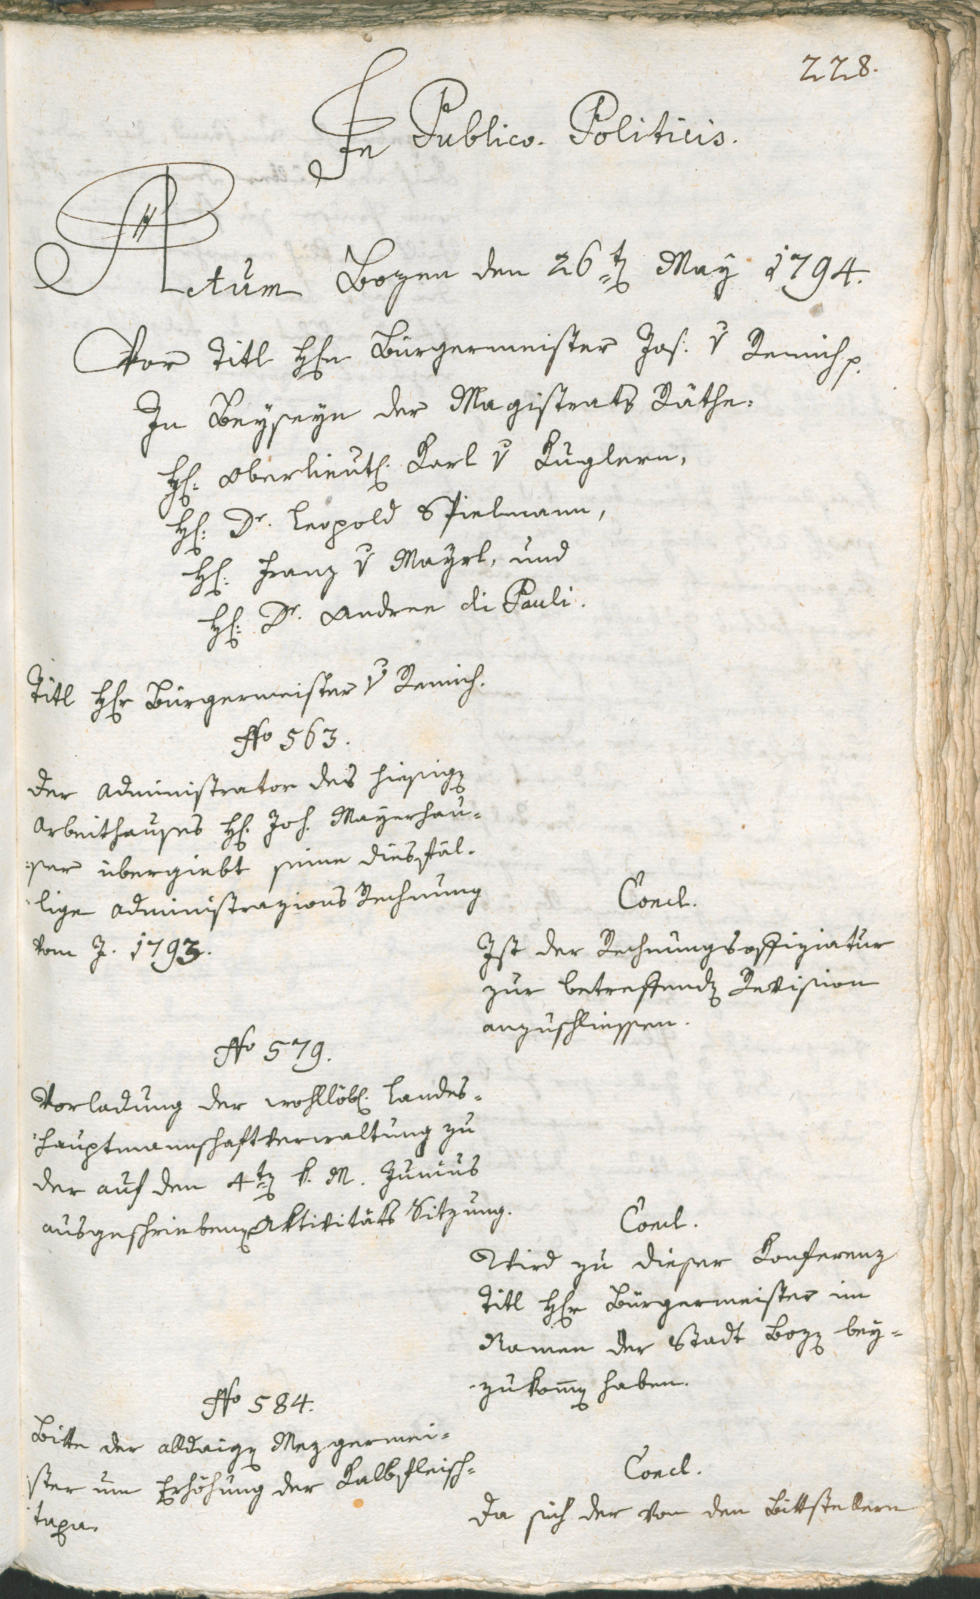 228.
In Publico. Politicis.
Actum Bozen den 26t. May 1794.
Vor Titl Hrn Bürgermeister Jos. v Remich p.
In Beyseyn der Magistrats Räthe.
H: Oberlieut. Karl v Kuglern,
H: Dr. Leopold Spielmann,
H: Franz v Mayrl, und
H: Dr. Andree di Pauli.
Titl Hr Bürgermeister v Remich.
No 563.
Der Administrator des hiesig
Arbeithauses H. Joh. Mayerhau-
ser übergiebt seine diesfäl-
lige Administrazions Rechnung
vom J. 1793.
Concl.
Ist der Rechnungsoffiziatur
zur betreffend Revision
anzuschliessen.
No 579.
Vorladung der wohllöbl. Landes-
hauptmannschaftverwaltung zu
der auf den 4t k. M. Junius
ausgeschrieben Aktivitäts Sitzung.
Concl.
Wird zu dieser Konferenz
Titl Hr Bürgermeister im
Namen der Stadt Boz bey-
zukom̅ haben.
No 584.
Bitte der alldaig Mezgermei-
ster um Erhöhung der Kalbfleisch-
taxa.
Concl.
Da sich der von den Bittstellern